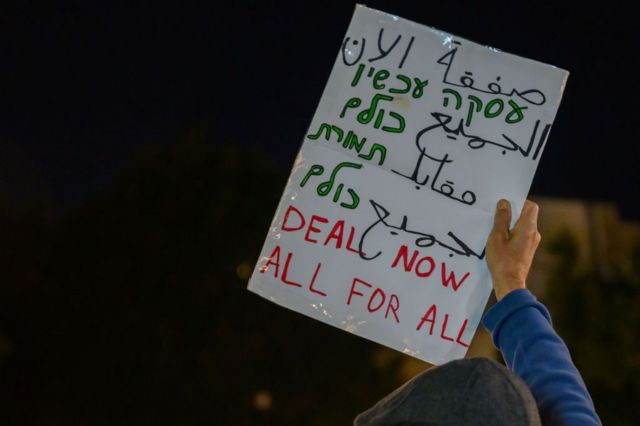 صفقة الان
עסקה עכשיו
الجميع כולם
مقابل תמורת
لجميع כולם
DEAL NOW
ALL FOR ALL